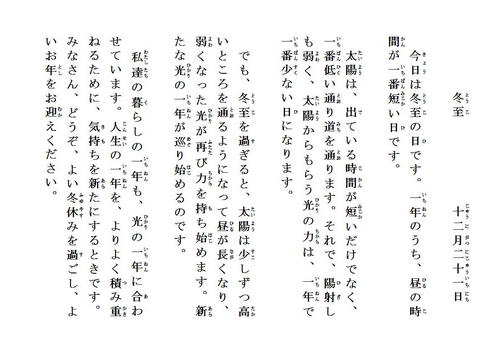 冬至　十二月二十一日
今日は冬至の日です。一年のうち、昼の時
間が一番短い日です。
太陽は、出ている時間が短いだけでなく、
一番低い通り道を通ります。それで、陽射し
も弱く、太陽からもらう光の力は、一年で
一番少ない日になります。
でも、冬至を過ぎると、太陽は少しずつ高
いところを通るようになって昼が長くなり、
弱くなった光が再び力を持ち始めます。新
たな光の一年が巡り始めるのです。
私達の暮らしの一年も、光の一年に合わ
せています。人生の一年を、よりよく積み重
ねるために、気持ちを新たにするときです。
みなさん、どうぞ、よい冬休みを過ごし、よ
いお年をお迎えください。